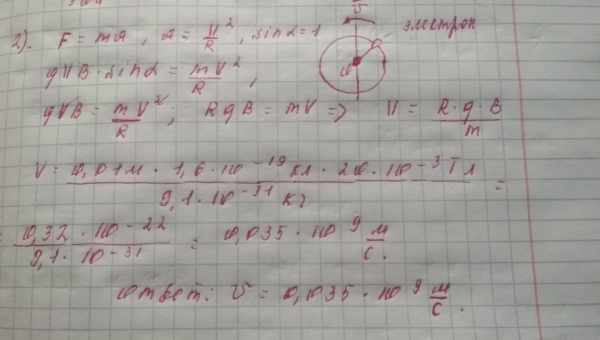 2). F = ma, a = υ²/R, sin α = 1
υ
электрон
qυB · sin α = mυ²/R,
qVB = mV²/R; RqB = mV => υ = R·q·B/m
V = 0,01м · 1,6·10⁻¹⁹ Кл · 20·10⁻³ Тл / 9,1·10⁻³¹ кг =
= 0,32·10⁻²² / 9,1·10⁻³¹ = 0,035·10⁹ м/с.
Ответ: υ = 0,035·10⁹ м/с.